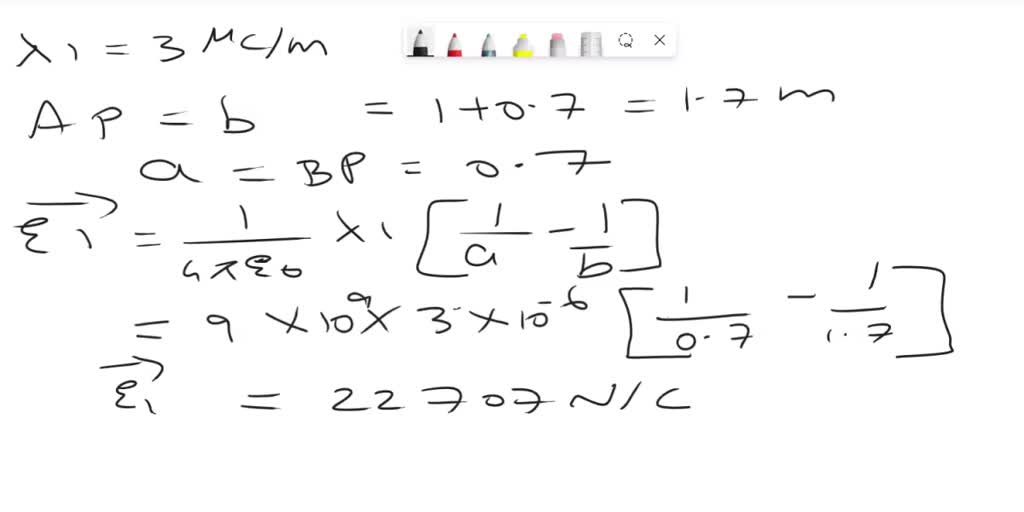 λ1 = 3 μC/m
AP = b = 1+0.7 = 1.7 m
a = BP = 0.7
ε⃗1 = 1/4πε0 λ1 [1/a - 1/b]
= 9 × 10^9 × 3 × 10^-6 [1/0.7 - 1/1.7]
ε⃗1 = 22707 N/C